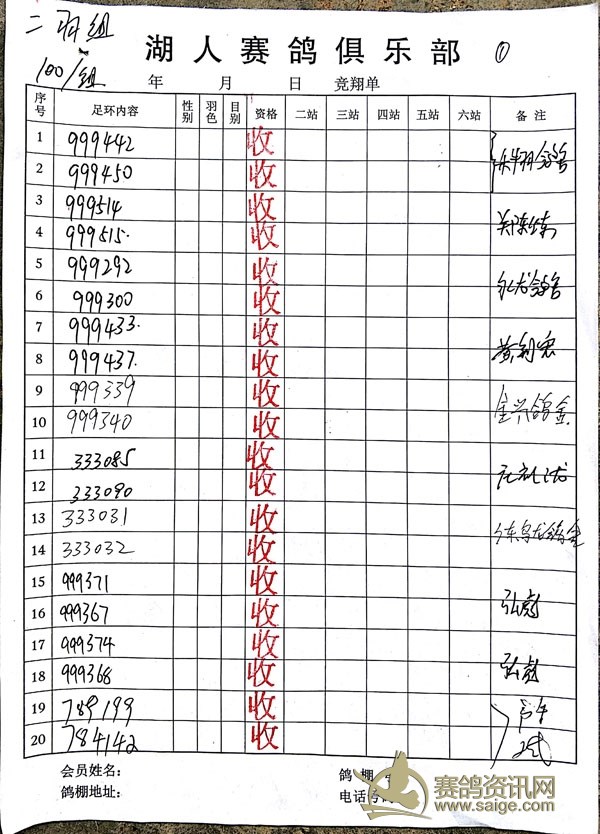 二羽组
湖人赛鸽俱乐部 ①
100/组
年 月 日 竞翔单
序号 足环内容 性别 羽色 目别 资格 二站 三站 四站 五站 六站 备注
1 999442 收
2 999450 收
3 999514 收
4 999515. 收
5 999292 收
6 999300 收
7 999433. 收
8 999437. 收
9 999339 收
10 999340 收
11 333085 收
12 333090 收
13 333031 收
14 333032 收
15 999371 收
16 999367 收 弘彪
17 999374 收
18 999368 收 弘彪
19 789199 收
20 784142 收
会员姓名: 鸽棚
鸽棚地址: 电话号
赛鸽资讯网
www.saige.com